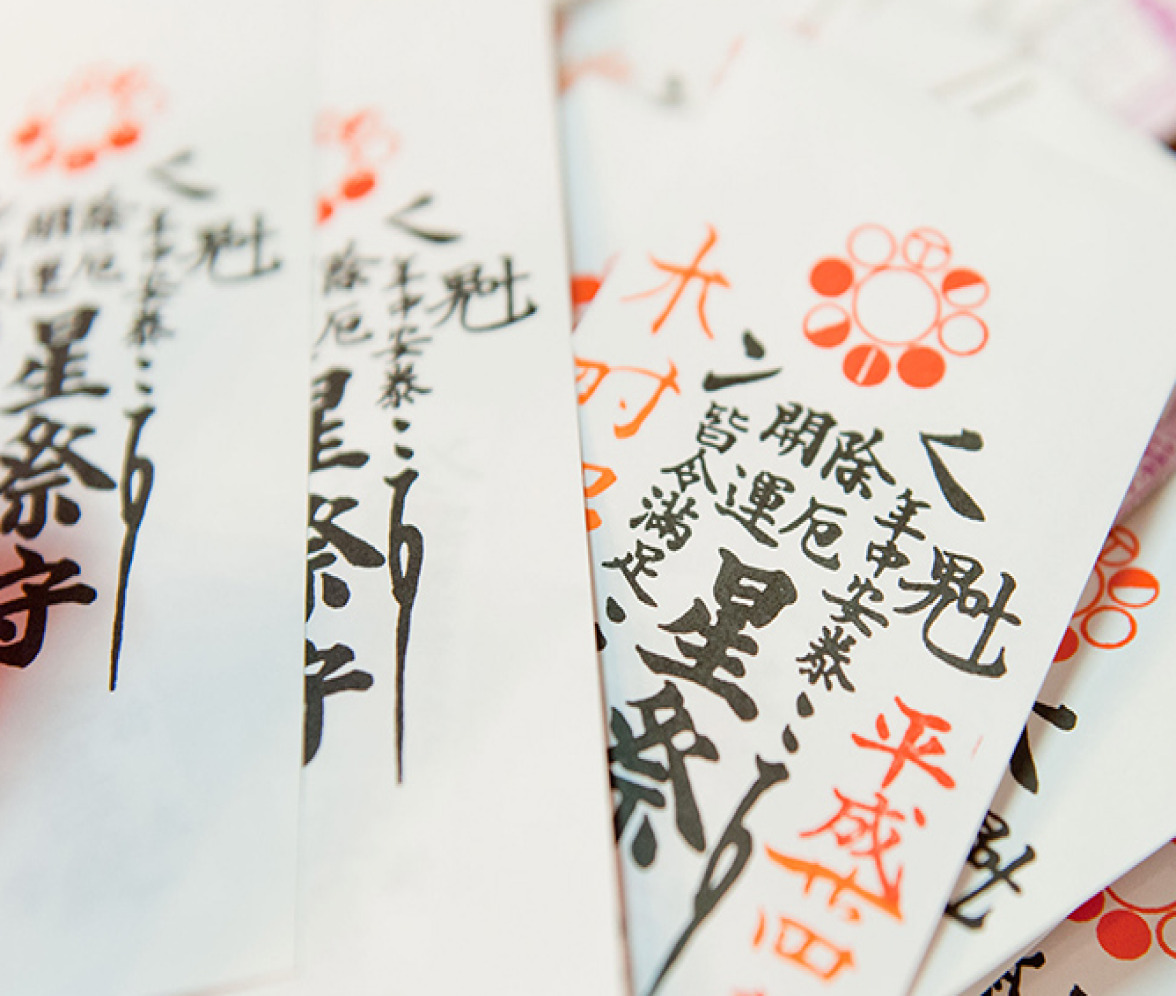 平成廿四
魁
年中安泰
除厄
開運
星祭
皆令満足
魁
年中安泰
除厄
星祭守
魁
年中安泰
除厄
開運
星祭守